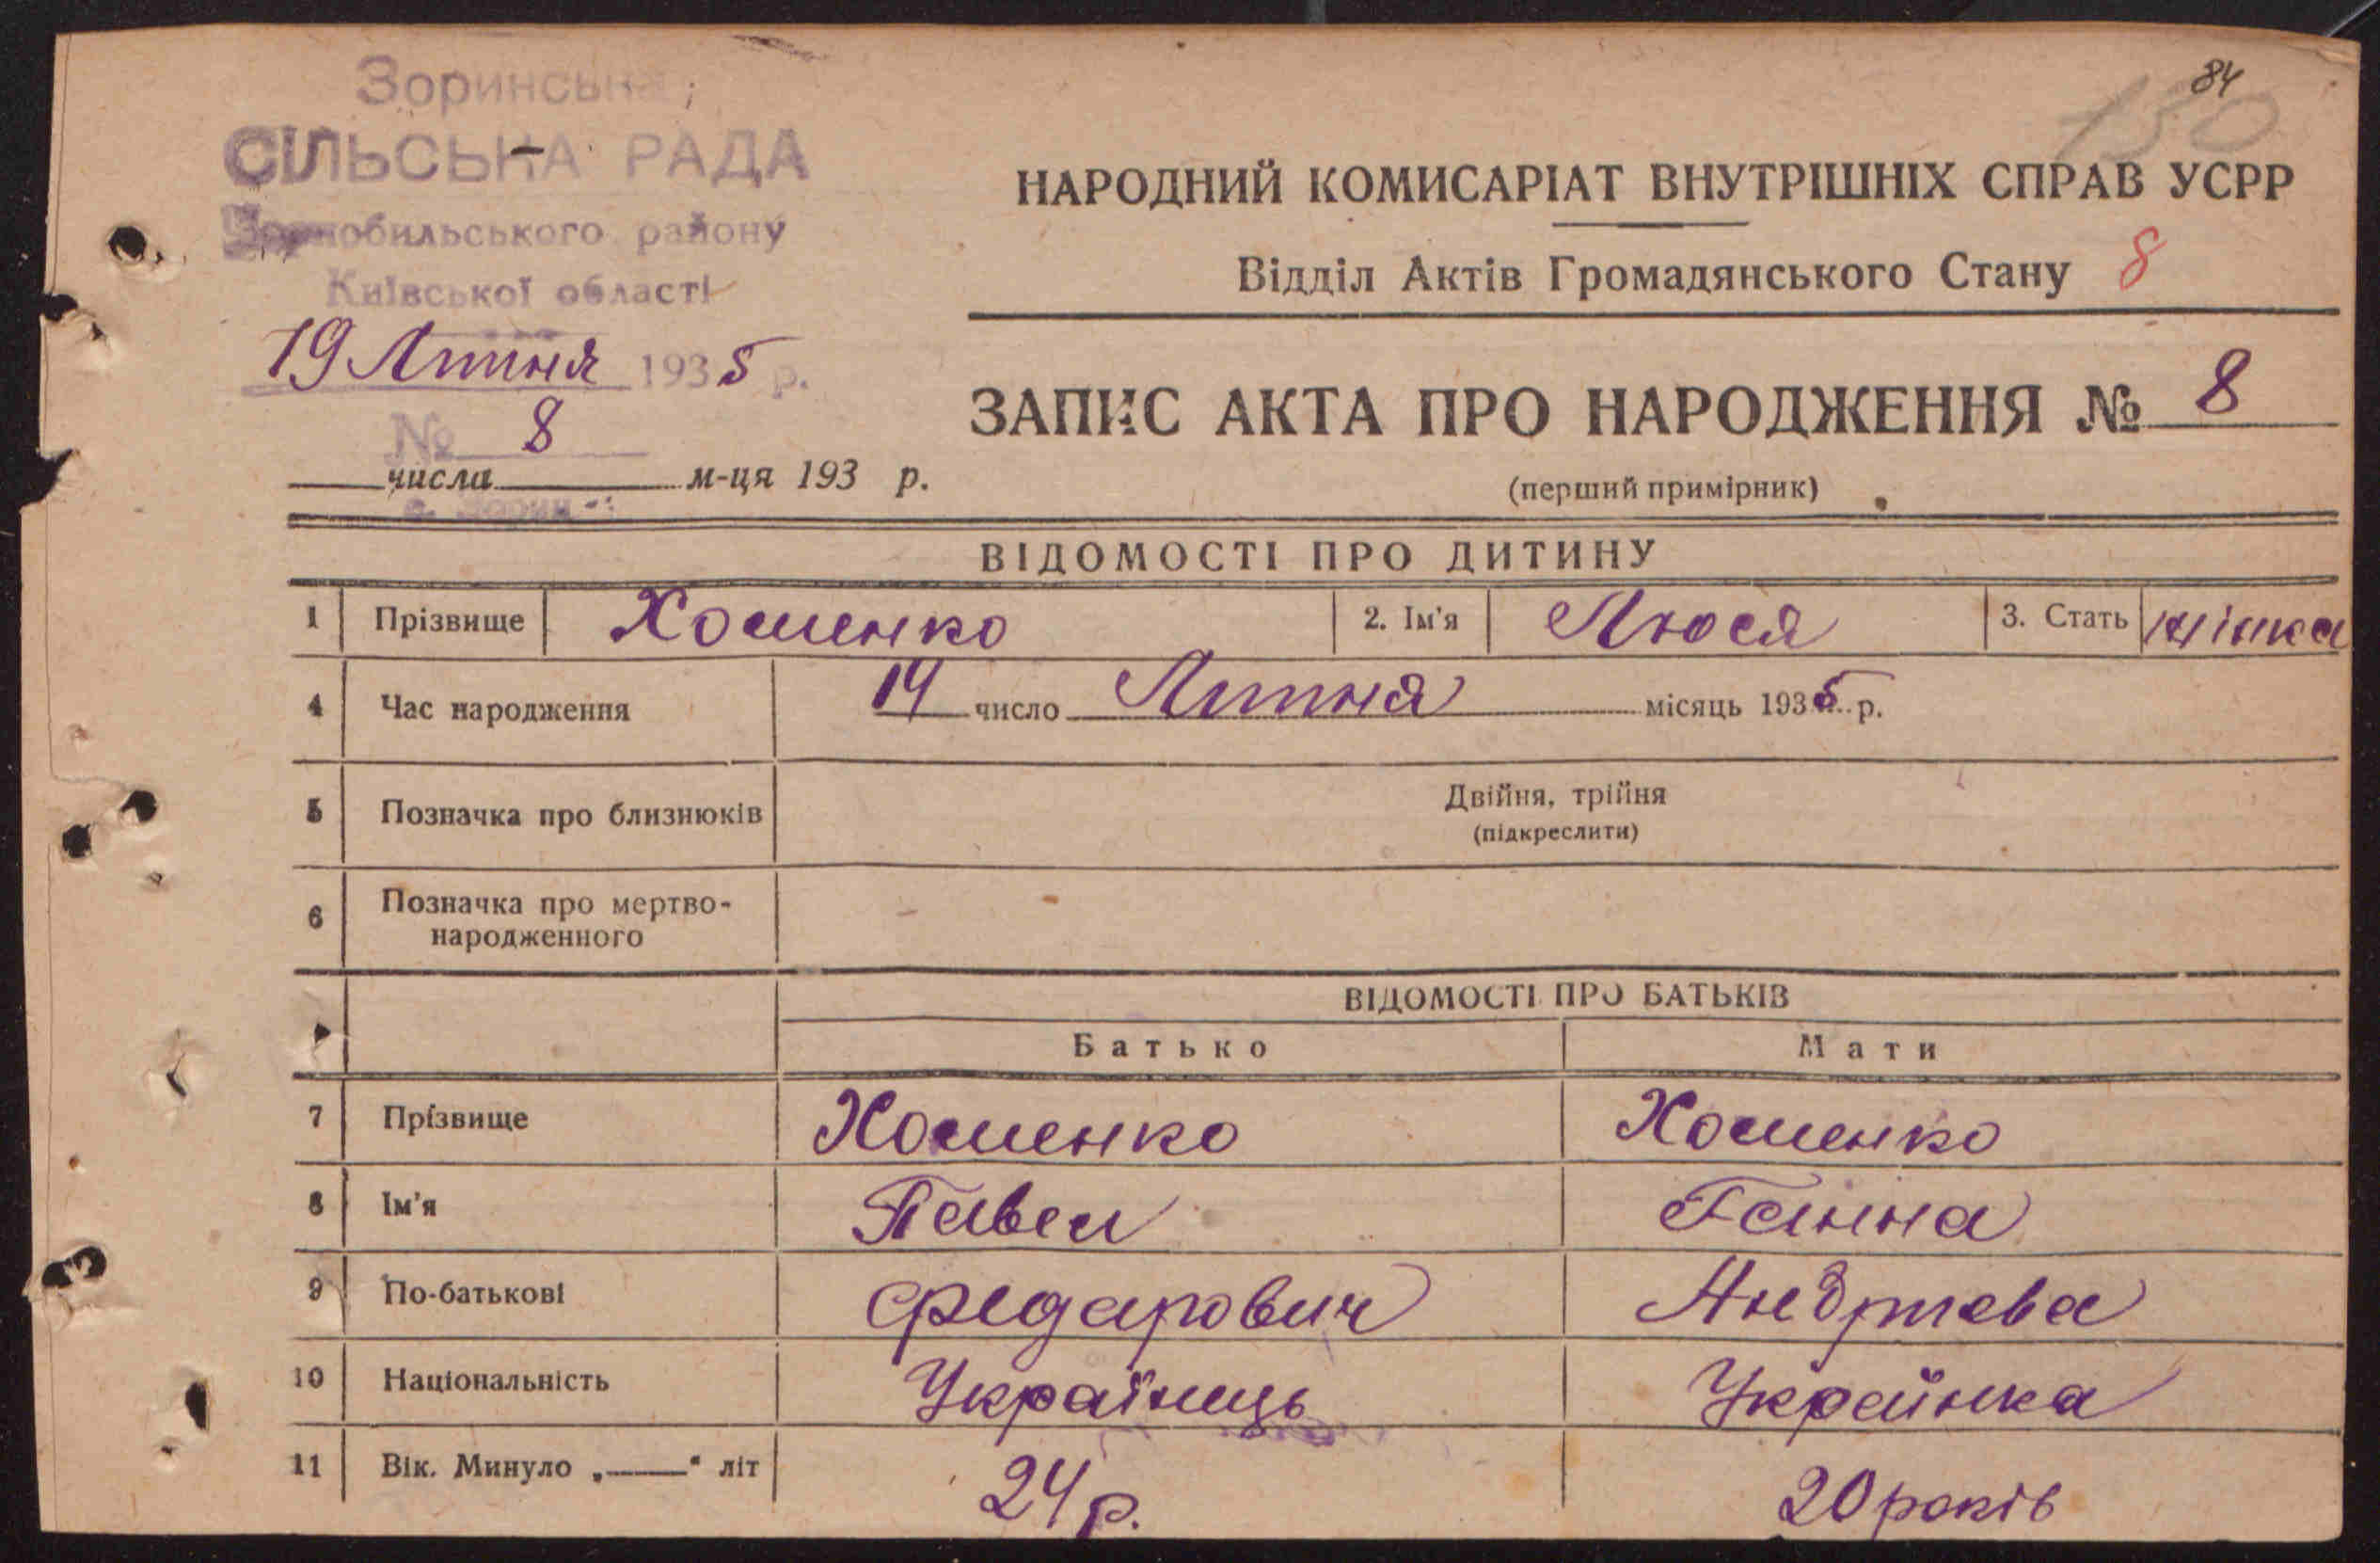 84
130
Зоринська
СІЛЬСЬКА РАДА
Чорнобильського району
Київської області
19 Липня 1935 р.
№ 8
числа м-ця 193 р.
НАРОДНИЙ КОМИСАРІАТ ВНУТРІШНІХ СПРАВ УСРР
Відділ Актів Громадянського Стану 8
ЗАПИС АКТА ПРО НАРОДЖЕННЯ № 8
(перший примірник)
ВІДОМОСТІ ПРО ДИТИНУ
1 Прізвище Хоменко 2. Ім'я Люся 3. Стать жінка
4 Час народження 14 число Липня місяць 1935 р.
5 Позначка про близнюків Двійня, трійня
(підкреслити)
6 Позначка про мертво-
народженного
ВІДОМОСТІ ПРО БАТЬКІВ
Батько Мати
7 Прізвище Хоменко Хоменко
8 Ім'я Павел Ганна
9 По-батькові Федарович
10 Національність Українець Українка
11 Вік. Минуло „——" літ 24 р. 20 років